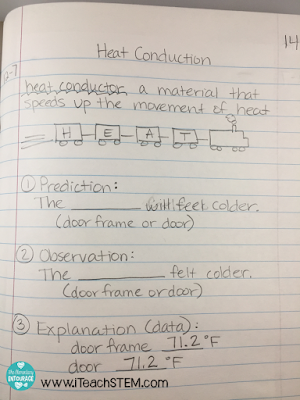 14
Heat Conduction
12-7
heat conductor a material that
speeds up the movement of heat
H E A T
① Prediction:
The ________ will feel colder.
(door frame or door)
② Observation:
The ________ felt colder.
(door frame or door)
③ Explanation (data):
door frame 71.2°F
door 71.2°F
My Elementary
ENTOURAGE
www.iTeachSTEM.com